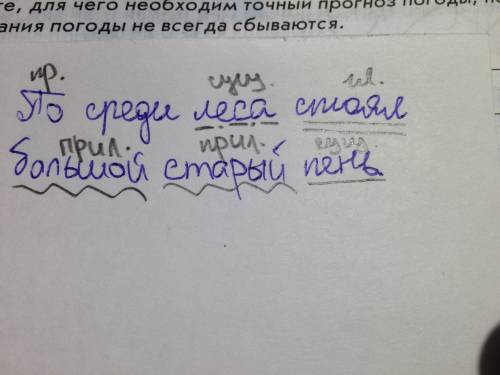 те, для чего необходим точный прогноз погоды, по
ания погоды не всегда сбываются.
пр. сущ. гл.
По среди леса стоял
прил. прил. сущ.
большой старый пень